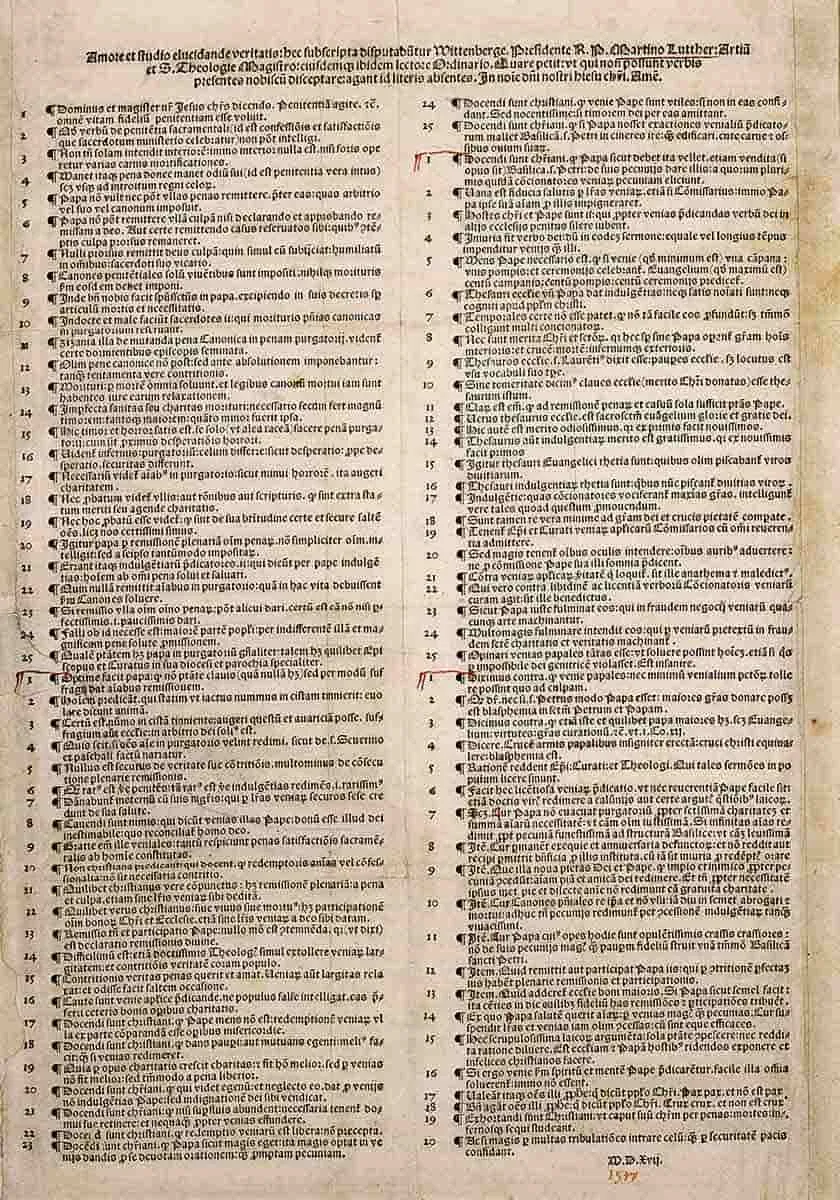 Amore et studio elucidande veritatis: hec subscripta disputabũtur Wittenberge. Presidente R. P. Martino Lutther: Artiũ
et S. Theologie Magistro: eiusdemq̃ ibidem lectore Ordinario. Quare petit: vt qui non possunt verbis
presentes nobiscũ disceptare: agant id literis absentes. In noĩe dñi nostri hiesu chr̃i. Amẽ.
1 ¶ Dominus et magister nr̃ Jesus chr̃s dicendo. Penitentiã agite. ⁊c̃.
omnẽ vitam fideliũ penitentiam esse voluit.
2 ¶ Qđ verbũ de penitẽtia sacramentali (id est confessiõis et satisfactiõis
que sacerdotum ministerio celebratur) non põt intelligi.
3 ¶ Non tñ solam intendit interiorẽ: immo interior nulla est. nisi foris ope
retur varias carnis mortificationes.
4 ¶ Manet itaqꝫ pena donec manet odiũ sui (id est penitentia vera intus)
scꝫ vsqꝫ ad introitum regni celoꝝ.
5 ¶ Papa nõ vult nec põt vllas penas remittere. p̃ter eas: quas arbitrio
vel suo vel canonum imposuit.
6 ¶ Papa nõ põt remittere vllã culpã nisi declarando et approbando re-
missam a deo. Aut certe remittendo casus reseruatos sibi: quibꝰ cõtẽ-
ptis culpa prorsus remaneret.
7 ¶ Nulli prorsus remittit deus culpã: quin simul eũ subijciat: humiliatũ
in omĩbus: sacerdoti suo vicario.
8 ¶ Canones penitẽtiales solũ viuẽtibus sunt impositi. nihilqꝫ morituris
ꝑm eosdem debet imponi.
9 ¶ Inde bñ nobis facit sp̃ussctũs in papa. excipiendo in suis decretis sꝑ
articulũ mortis et necessitatis.
10 ¶ Indocte et male faciũt sacerdotes ii: qui morituris pñias canonicas
in purgatorium reseruant.
11 ¶ Zizania illa de mutanda pena Canonica in penam purgatorij. vident̃
certe dormientibus episcopis seminata.
12 ¶ Olim pene canonice nõ post: sed ante absolutionem imponebantur:
tanqꝫ tentamenta vere contritionis.
13 ¶ Morituri: ꝑ mortẽ omnia soluunt. et legibus canonũ mortui iam sunt
habentes iure earum relaxationem.
14 ¶ Imperfecta sanitas seu charitas morituri: necessario secum fert magnũ
timorem: tantoqꝫ maiorem: quãto minor fuerit ipsa.
15 ¶ Hic timor et horror: satis est. se solo (vt alia taceã) facere penã purga-
torii: cum sit ꝓximus desperatiõis horrori.
16 ¶ Vident̃ infernus: purgatoriũ: celum differre: sicut desperatio: ꝓpe de-
speratio. securitas differunt.
17 ¶ Necessariũ videt̃ aĩabꝰ in purgatorio: sicut minui horrorẽ. ita augeri
charitatem.
18 ¶ Nec ꝓbatum videt̃ vllis: aut rõnibus aut scripturis. ꝙ sint extra sta-
tum meriti seu agende charitatis.
19 ¶ Nec hoc ꝓbatũ esse videt̃: ꝙ sint de sua beatitudine certe et secure saltẽ
oẽs. licꝫ nos certissimi simus.
20 ¶ Igitur papa ꝑ remissionẽ plenariã oĩm penaꝝ. nõ simpliciter oĩm. in-
telligit: sed a seipso tantũmodo impositaꝝ.
21 ¶ Errant itaqꝫ indulgẽtiarũ p̃dicatores. ii: qui dicũt per pape indulgẽ
tias: hoĩem ab omĩ pena solui et saluari.
22 ¶ Quin nullã remittit aĩabus in purgatorio: quã in hac vita debuissent
ꝑm Canones soluere.
23 ¶ Si remissio vlla oĩm oĩno penaꝝ: põt alicui dari. certũ est eã nõ nisi ꝑ-
fectissimis. i. paucissimis dari.
24 ¶ Falli ob id necesse est: maiorẽ partẽ popli: per indifferentẽ illã et ma-
gnificam pene solute ꝓmissionem.
25 ¶ Qualẽ ptãtẽ hꝫ papa in purgatoriũ gñaliter: talem hꝫ quilibet Epi
scopus et Curatus in sua diocesi et parochia specialiter.
1 ¶ Optime facit papa: ꝙ nõ ptãte clauis (quã nullã hꝫ) sed per modũ suf
fragij dat aĩabus remissionem.
2 ¶ Hoĩem predicãt. qui statim vt iactus nummus in cistam tinnierit: euo
lare dicunt animã.
3 ¶ Certũ est. nũmo in cistã tinniente: augeri questũ et auariciã posse. suf-
fragium aũt ecclie: in arbitrio dei solꝰ est.
4 ¶ Quis scit. si oẽs aĩe in purgatorio velint redimi. sicut de. s. Seuerino
et paschali factũ narratur.
5 ¶ Nullus est securus de veritate sue cõtritiõis. multominus de cõsecu
tione plenarie remissionis.
6 ¶ Qꝫ rarꝰ est ꝟe penitẽs: tã rarꝰ est ꝟe indulgẽtias redimẽs. i. rarissimꝰ
7 ¶ Dãnabunt̃ in eternũ cũ suis mgr̃is: qui ꝑ lr̃as veniaꝝ securos sese cre
dunt de sua salute.
8 ¶ Cauendi sunt nimis: qui dicũt venias illas Pape: donũ esse illud dei
inestimabile: quo reconciliat̃ homo deo.
9 ¶ Gratie em̃ ille veniales: tantũ respiciunt penas satisfactiõis sacramẽ-
ralis ab homĩe constitutas.
10 ¶ Non christiana predicant: qui docent. ꝙ redempturis aĩas vel cõfes-
sionalia: nõ sit necessaria contritio.
11 ¶ Quilibet christianus vere cõpunctus: hꝫ remissionẽ plenariã: a pena
et culpa. etiam sine lr̃is veniaꝝ sibi debitã.
12 ¶ Quilibet verus christianus: siue viuus siue mortuꝰ: hꝫ participationẽ
oĩm bonoꝝ Chr̃i et Ecclesie. etiã sine lr̃is veniaꝝ a deo sibi datam.
13 ¶ Remissio tñ et participatio Pape: nullo mõ est ꝯtemnẽda. q̃ (vt dixi)
est declaratio remissionis diuine.
14 ¶ Difficillimũ est: etiã doctissimis Theologꝰ simul extollere veniaꝝ lar-
gitatem: et contritiõis veritatẽ coram populo.
15 ¶ Contritionis veritas penas querit et amat. Veniaꝝ aũt largitas rela
xat: et odisse facit saltem occasione.
16 ¶ Caute sunt venie aplice p̃dicande. ne populus false intelligat. eas p̃-
ferri ceteris bonis operibus charitatis.
17 ¶ Docendi sunt christiani. ꝙ Pape mens nõ est: redemptionẽ veniaꝝ vl
la ex parte cõparandã esse opibus misericordie.
18 ¶ Docendi sunt christiani. ꝙ dans pauꝑi: aut mutuans egenti: meliꝰ fa-
cit: qꝫ si venias redimeret.
19 ¶ Quia ꝑ opus charitatis crescit charitas: ⁊ fit hõ melior. sed ꝑ venias
nõ fit melior: sed tm̃modo a pena liberior.
20 ¶ Docendi sunt chr̃iani. ꝙ qui videt egenũ: et neglecto eo. dat ꝓ venijs
nõ indulgẽtias Pape: sed indignationẽ dei sibi vendicat.
21 ¶ Docendi sunt chr̃iani. ꝙ nisi suꝑfluis abundent: necessaria tenent̃ do-
mui sue retinere: et nequaqꝫ ꝓpter venias effundere.
22 ¶ Docẽdi sunt christiani. ꝙ redemptio veniarũ est libera: nõ precepta.
23 ¶ Docẽdi sunt chr̃iani. ꝙ Papa sicut magis eget: ita magis optat in ve
nijs dandis ꝓ se deuotam orationem: qꝫ ꝓmptam pecuniam.
24 ¶ Docendi sunt christiani. ꝙ venie Pape sunt vtiles: si non in eas confi-
dant. Sed nocentissime: si timorem dei per eas amittant.
25 ¶ Docendi sunt chr̃iani. ꝙ si Papa nosset exactiones venialiũ p̃dicato-
rum mallet Basilicã. s. Petri in cineres ire: qꝫ edificari. cute carne ⁊ os-
sibus ouium suaꝝ.
1 ¶ Docendi sunt chr̃iani. ꝙ Papa sicut debet ita vellet. etiam vendita (si
opus sit) Basilica. s. Petri: de suis pecunijs dare illis: a quoꝝ plurimis
quidã cõcionatores veniaꝝ pecuniam eliciunt.
2 ¶ Uana est fiducia salutis ꝑ lr̃as veniaꝝ. etiã si Cõmissarius: immo Pa-
pa ipse suã aĩam ꝓ illis impigneraret.
3 ¶ Hostes chr̃i et Pape sunt ii: qui ꝓpter venias p̃dicandas verbũ dei in
alijs ecclesijs penitus silere iubent.
4 ¶ Iniuria fit verbo dei: dũ in eodẽ sermone: equale vel longius tẽpus
impenditur venijs qꝫ illi.
5 ¶ Mens Pape necessario est. ꝙ si venie (qđ minimum est) vna cãpana:
vnis pompis: et ceremonijs celebrant̃. Euangelium (qđ maximũ est)
centũ campanis: centũ pompis: centũ ceremonijs predicet̃.
6 ¶ Thesauri ecclie vñ Papa dat indulgẽtias: neqꝫ satis noĩati sunt: neqꝫ
cogniti apud pplm̃ christi.
7 ¶ Temporales certe nõ esse patet. ꝙ nõ tã facile eos ꝓfundũt: sꝫ tm̃mõ
colligunt multi concionatoꝝ.
8 ¶ Nec sunt merita Chr̃i et sctõꝝ. qꝛ hec sꝑ sine Papa operant̃ gram̃ hoĩs
interioris: et crucẽ: mortẽ: infernumqꝫ exterioris.
9 ¶ Thesauros ecclie. s. Laurẽtiꝰ dixit esse: pauꝑes ecclie. sꝫ locutus est
vsu vocabuli suo tꝑe.
10 ¶ Sine temeritate dicimꝰ claues ecclie (merito Chr̃i donatas) esse the-
saurum istum.
11 ¶ Claꝝ est em̃. ꝙ ad remissionẽ penaꝝ et casuũ sola sufficit ptãs Pape.
12 ¶ Uerus thesaurus ecclie. est sacrosctm̃ euãgelium glorie et gratie dei.
13 ¶ Hic aũt est merito odiosissimus. qꝛ ex primis facit nouissimos.
14 ¶ Thesaurus aũt indulgentiaꝝ merito est gratissimus. qꝛ ex nouissimis
facit primos
15 ¶ Igitur thesauri Euangelici rhetia sunt: quibus olim piscabant̃ viros
diuitiarum.
16 ¶ Thesauri indulgentiaꝝ rhetia sunt: q̃bus nũc piscant̃ diuitias viroꝝ.
17 ¶ Indulgẽtie: quas cõcionatores vociferant̃ maxias gr̃as. intelligunt̃
vere tales quoad questum ꝓmouendum.
18 ¶ Sunt tamen re vera minime ad gr̃am dei et crucis pietatẽ compate.
19 ¶ Tenent̃ Ep̃i et Curati veniaꝝ aplicaꝝ Cõmissarios cũ omĩ reueren-
tia admittere.
20 ¶ Sed magis tenent̃ oĩbus oculis intendere: oĩbus auribꝰ aduertere:
ne ꝓ cõmissione Pape sua illi somnia p̃dicent.
21 ¶ Cõtra veniaꝝ aplicaꝝ ꝟitatẽ q̃ loquit̃. sit ille anathema ⁊ maledictꝰ.
22 ¶ Qui vero contra. libidinẽ ac licentiã verborũ Cõcionatoris veniarũ
curam agit: sit ille benedictus.
23 ¶ Sicut Papa iuste fulminat eos: qui in fraudem negocij veniarũ qua-
cunqꝫ arte machinantur.
24 ¶ Multomagis fulminare intendit eos: qui ꝑ veniarũ pretextũ in frau-
dem sctẽ charitatis et veritatis machinant̃.
25 ¶ Opinari venias papales tãtas esse: vt soluere possint hoĩẽꝫ. etiã si qs
ꝑ impossibile dei genitricẽ violasset. Est insanire.
1 ¶ Diximus contra. ꝙ venie papales: nec minimũ venialium pctõꝝ tolle
re possint quo ad culpam.
2 ¶ Qđ dr̃. nec si. s. Petrus modo Papa esset: maiores gr̃as donare possꝫ
est blasphemia in sctm̃ Petrum et Papam.
3 ¶ Dicimus contra. ꝙ etiã iste et quilibet papa maiores hꝫ. scꝫ Euange-
lium: virtutes: gr̃as curationũ. ⁊c̃. vt. i. Co. xij.
4 ¶ Dicere. Crucẽ armis papalibus insigniter erectã: cruci christi equiua
lere: blasphemia est.
5 ¶ Rationẽ reddent Ep̃i: Curati: et Theologi. Qui tales sermões in po
pulum licere sinunt.
6 ¶ Facit hec licẽtiosa veniaꝝ p̃dicatio. vt nec reuerentiã Pape facile sit:
etiã doctis virꝭ redimere a calũnijs aut certe argutꝭ q̃stiõibꝰ laicoꝝ.
7 ¶ Scꝫ. Cur Papa nõ euacuat purgatoriũ ꝓpter sctissimã charitatẽ: et
summã aĩarũ necessitatẽ: vt cãm oĩm iustissimã. Si infinitas aĩas re-
dimit ꝓpt̃ pecuniã funestissimã ad structurã Basilice: vt cãm leuissimã
8 ¶ Itẽ. Cur ꝑmanẽt exequie et anniuersaria defunctoꝝ: et nõ reddit aut
recipi ꝑmittit bñficia ꝓ illis instituta. cũ iã sit iniuria ꝓ redẽptꝭ orare
9 ¶ Itẽ. Que illa noua pietas Dei et Pape. ꝙ impio et inimico ꝓpter pe-
cuniã ꝯcedũt aĩam piã et amicã dei redimere. Et tñ ꝓpter necessitatẽ
ipsius met pie et dilecte aĩe nõ redimunt eã gratuita charitate.
10 ¶ Itẽ. Cur Canones pñiales re ip̃a et nõ vsu: iã diu in semet abrogati ⁊
mortui: adhuc tñ pecunijs redimunt̃ ꝑ ꝯcessionẽ indulgẽtiaꝝ tanqꝫ
viuacissimi.
11 ¶ Itẽ. Cur Papa cuiꝰ opes hodie sunt opulẽtissimis crassis crassiores:
nõ de suis pecunijs magꝭ qꝫ pauꝑum fideliũ struit vnã tm̃mõ Basilicã
sancti Petri.
12 ¶ Item. Quid remittit aut participat Papa iis: qui ꝑ ꝯtritionẽ ꝑfectaꝫ
ius habẽt plenarie remissionis et participationis.
13 ¶ Item. Quid adderet̃ ecclie boni maioris. Si Papa sicut semel facit:
ita cẽties in die cuilibꝫ fideliũ has remissiões ⁊ ꝑticipatiões tribuẽt.
14 ¶ Ex quo Papa salutẽ querit aĩaꝝ: ꝑ venias magꝭ qꝫ pecunias. Cur su-
spendit lr̃as et venias iam olim ꝯcessas: cũ sint eque efficaces.
15 ¶ Hec scrupulosissima laicoꝝ argumẽta: sola ptãte ꝯpescere: nec reddi-
ta ratione diluere. Est eccliam ⁊ Papã hostibꝰ ridendos exponere et
infelices christianos facere.
16 ¶ Si ergo venie ꝑm spiritũ et mentẽ Pape p̃dicarẽtur. facile illa omnia
soluerent̃: immo nõ essent.
17 ¶ Ualeãt itaqꝫ oẽs illi. ꝓphẽ: q̃ dicũt pplo Chr̃i. Pax pax. et nõ est pax.
18 ¶ Bñ agãt oẽs illi. ꝓphẽ: q̃ dicũt pplo Chr̃i. Crux crux. et non est crux
19 ¶ Exhortandi sunt Christiani: vt caput suũ chr̃m per penas: mortes: in-
fernosqꝫ sequi studeant.
20 ¶ Ac si magis ꝑ multas tribulatiões intrare celũ: qꝫ ꝑ securitatẽ pacis
confidant.
M.D.Xvij.
1517